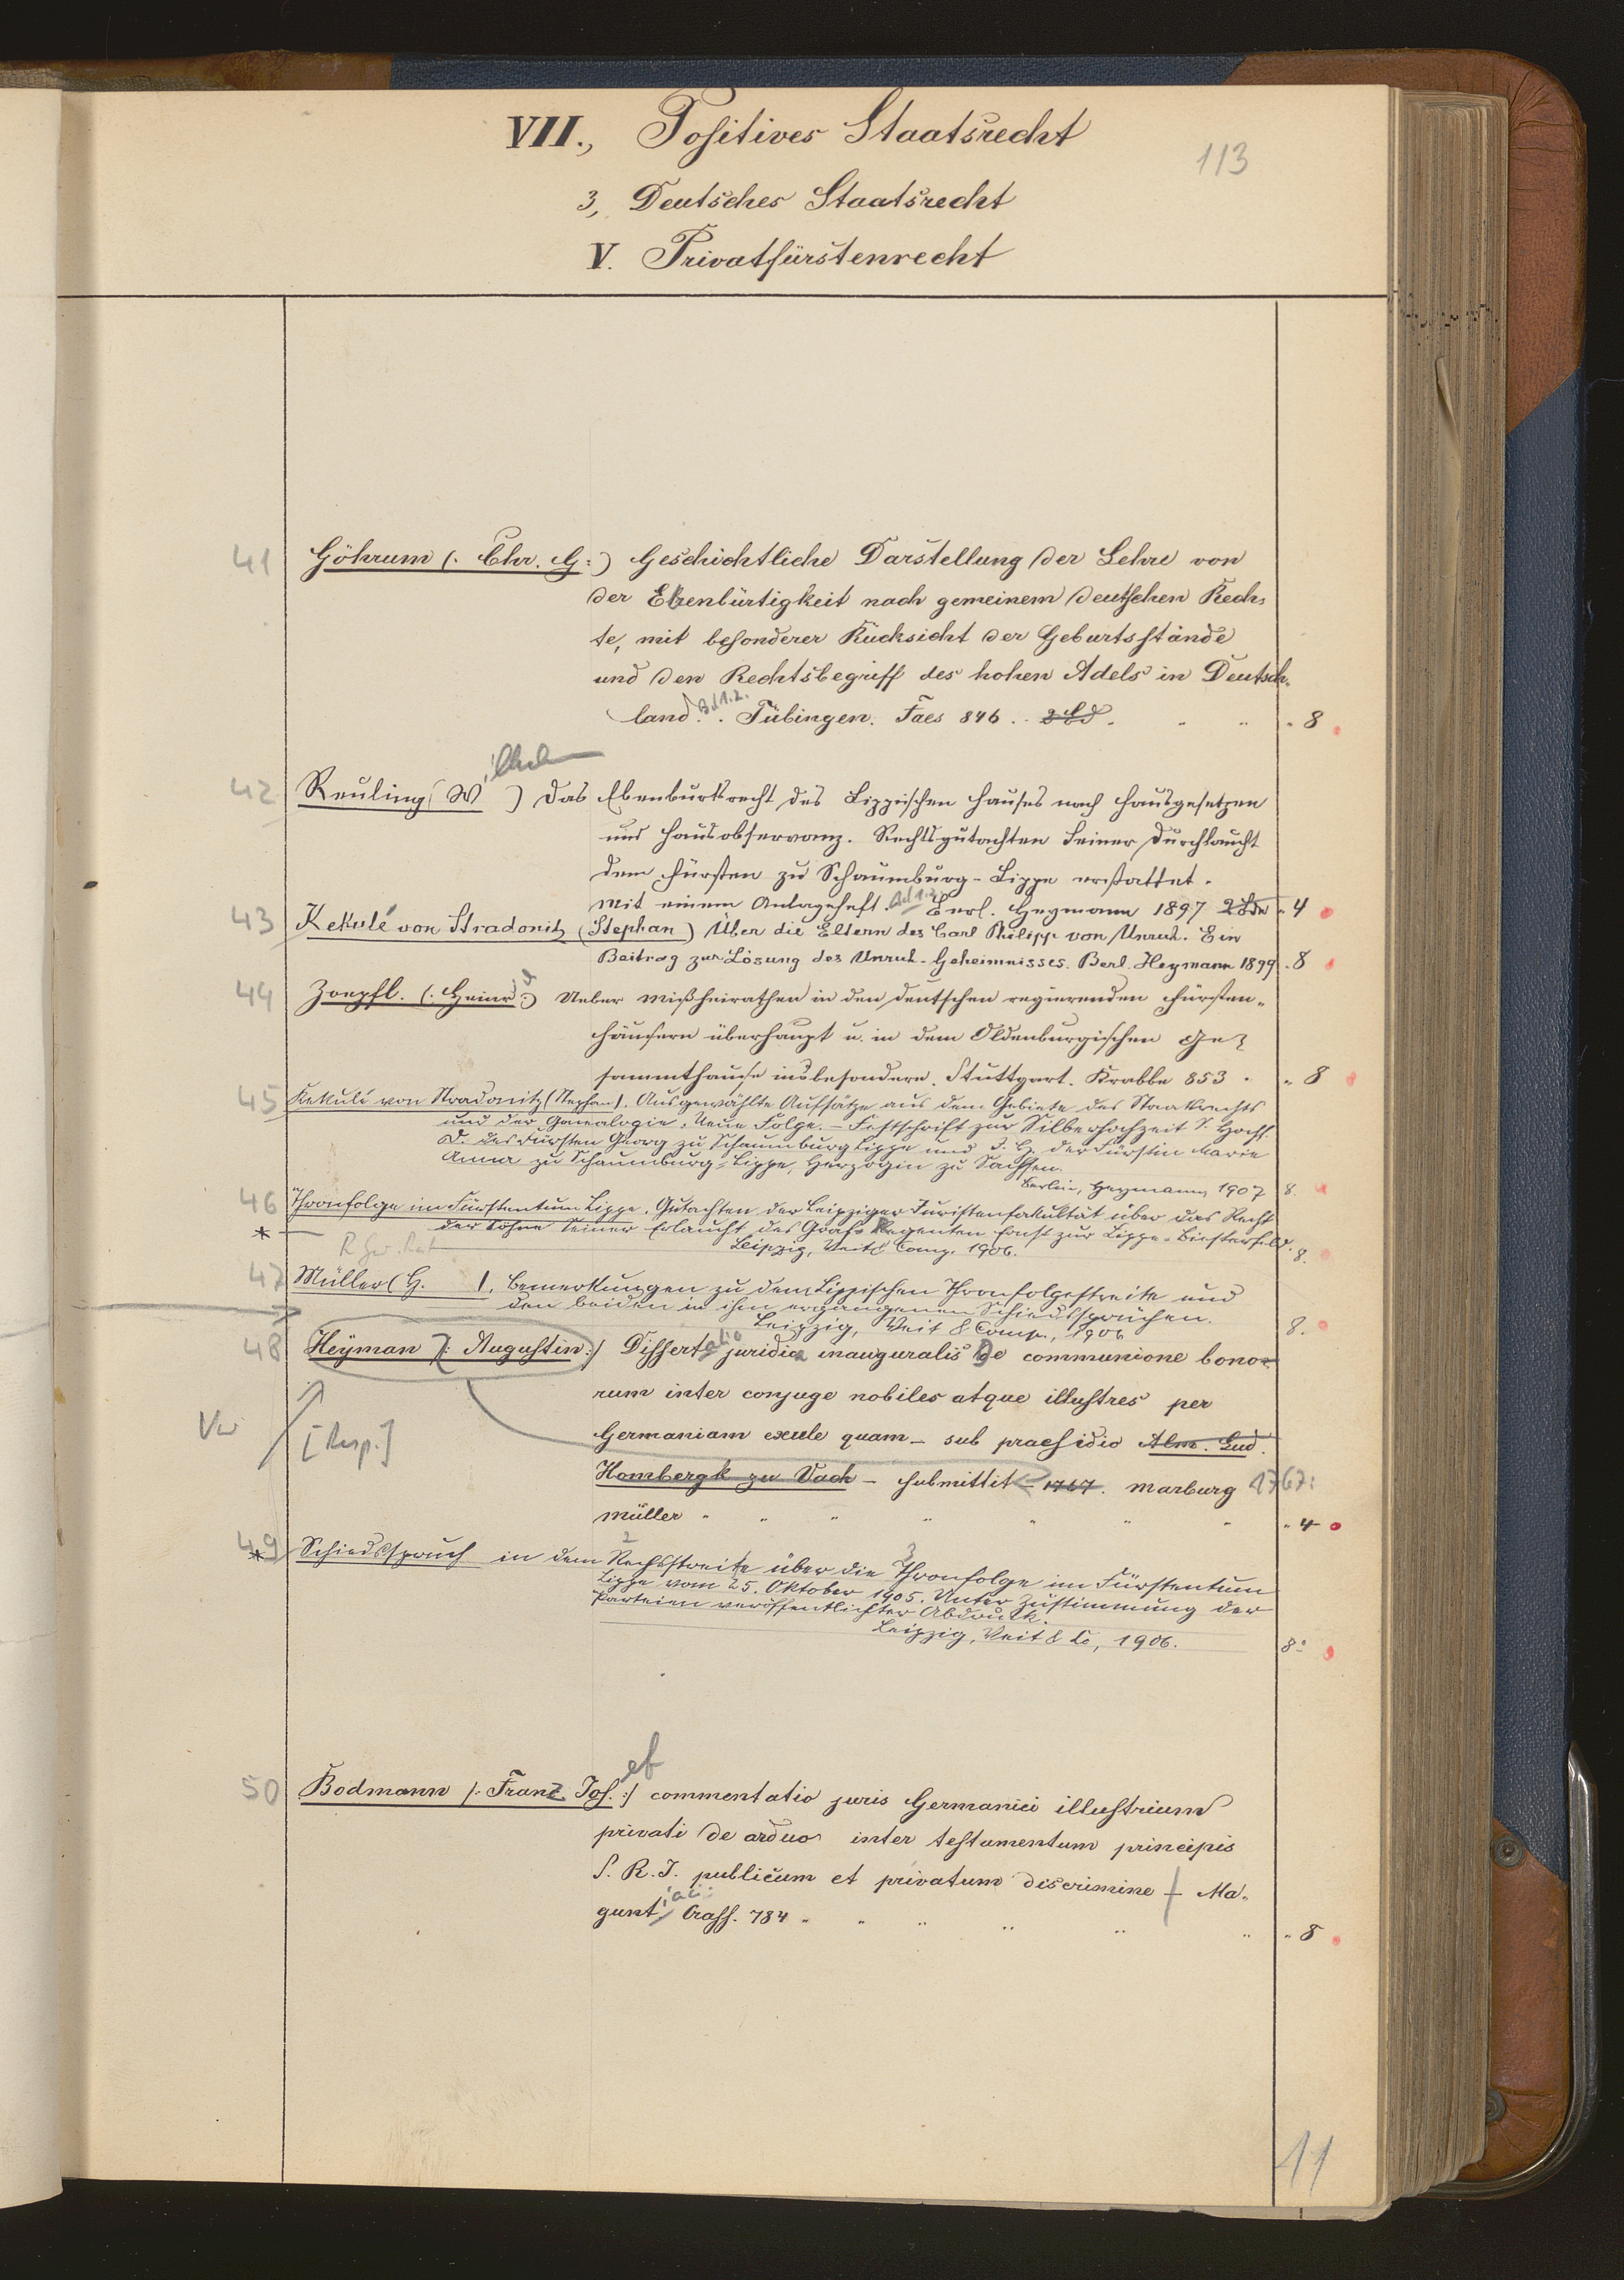 VII., Positives Staatsrecht
113
3, Deutsches Staatsrecht
V. Privatfürstenrecht
41 Göhrum (: Chr. G :) Geschichtliche Darstellung der Lehre von
der Ebenbürtigkeit nach gemeinem deutschen Rech-
te, mit besonderer Rücksicht der Geburtsstände
und den Rechtsbegriff des hohen Adels in Deutsch-
land. Bd 1.2. Tübingen. Fues 846. 2 Bd. " " " 8
42 Reuling (Wilhelm) Das Ebenburtsrecht des Lippischen Hauses nach Hausgesetzen
und Hausobservanz. Rechtsgutachten Seiner Durchlaucht
dem Fürsten zu Schaumburg-Lippe erstattet.
Mit einem Anlageheft. Bd 1.2. Berl. Heymann 1897 2 Bde " 4
43 Kekulé von Stradonitz (Stephan) Über die Eltern des Carl Philipp von Unruh. Ein
Beitrag zur Lösung des Unruh-Geheimnisses. Berl. Heymann 1899 " 8
44 Zoepfl. (: Heinr :) Ueber Mißheirathen in den deutschen regierenden Fürsten-
häusern überhaupt u. in dem Oldenburgischen Ge-
sammthause insbesondere. Stuttgart. Krabbe 853 " " 8
45 Kekulé von Stradonitz (Stephan). Ausgewählte Aufsätze aus dem Gebiete des Staatsrechts
und der Genealogie. Neue Folge. – Festschrift zur Silberhochzeit S. Hochf.
D. des Fürsten Georg zu Schaumburg Lippe und I. H. der Fürstin Marie
Anna zu Schaumburg-Lippe, Herzogin zu Sachsen.
Berlin, Heymann, 1907 8.
46 Thronfolge im Fürstentum Lippe. Gutachten der Leipziger Juristenfakultät über das Recht
* der Söhne Seiner Erlaucht des Graf-Regenten Ernst zur Lippe-Biesterfeld.
Leipzig, Veit & Comp. 1906. 8.
47 Müller (H. ). Bemerkungen zu dem Lippischen Thronfolgestreite und
den beiden in ihm ergangenen Schiedssprüchen.
Leipzig, Veit & Comp., 1906 8.
48 Heÿman (: Augustin :) Dissertatio juridica inauguralis De communione bono-
rum inter conjuge nobiles atque illustres per
[Resp.]
Germaniam exule quam – sub praesidio Alm. Lud.
Hombergk zu Vach – submittit – 1767. Marburg 1767:
Müller " " " " " " " " 4
49 * Schiedsspruch in dem Rechsstreite über die Thronfolge im Fürstentum
Lippe vom 25. Oktober 1905. Unter Zustimmung der
Parteien veröffentlichter Abdruck.
Leipzig, Veit & Co, 1906. 8°
50 Bodmann (: Franz Jos. :) commentatio juris Germanici illustrium
privati de arduo inter testamentum principis
S. R. I. publicum et privatum discrimine – Ma-
gunt. Crass. 784 " " " " " " " 8
11